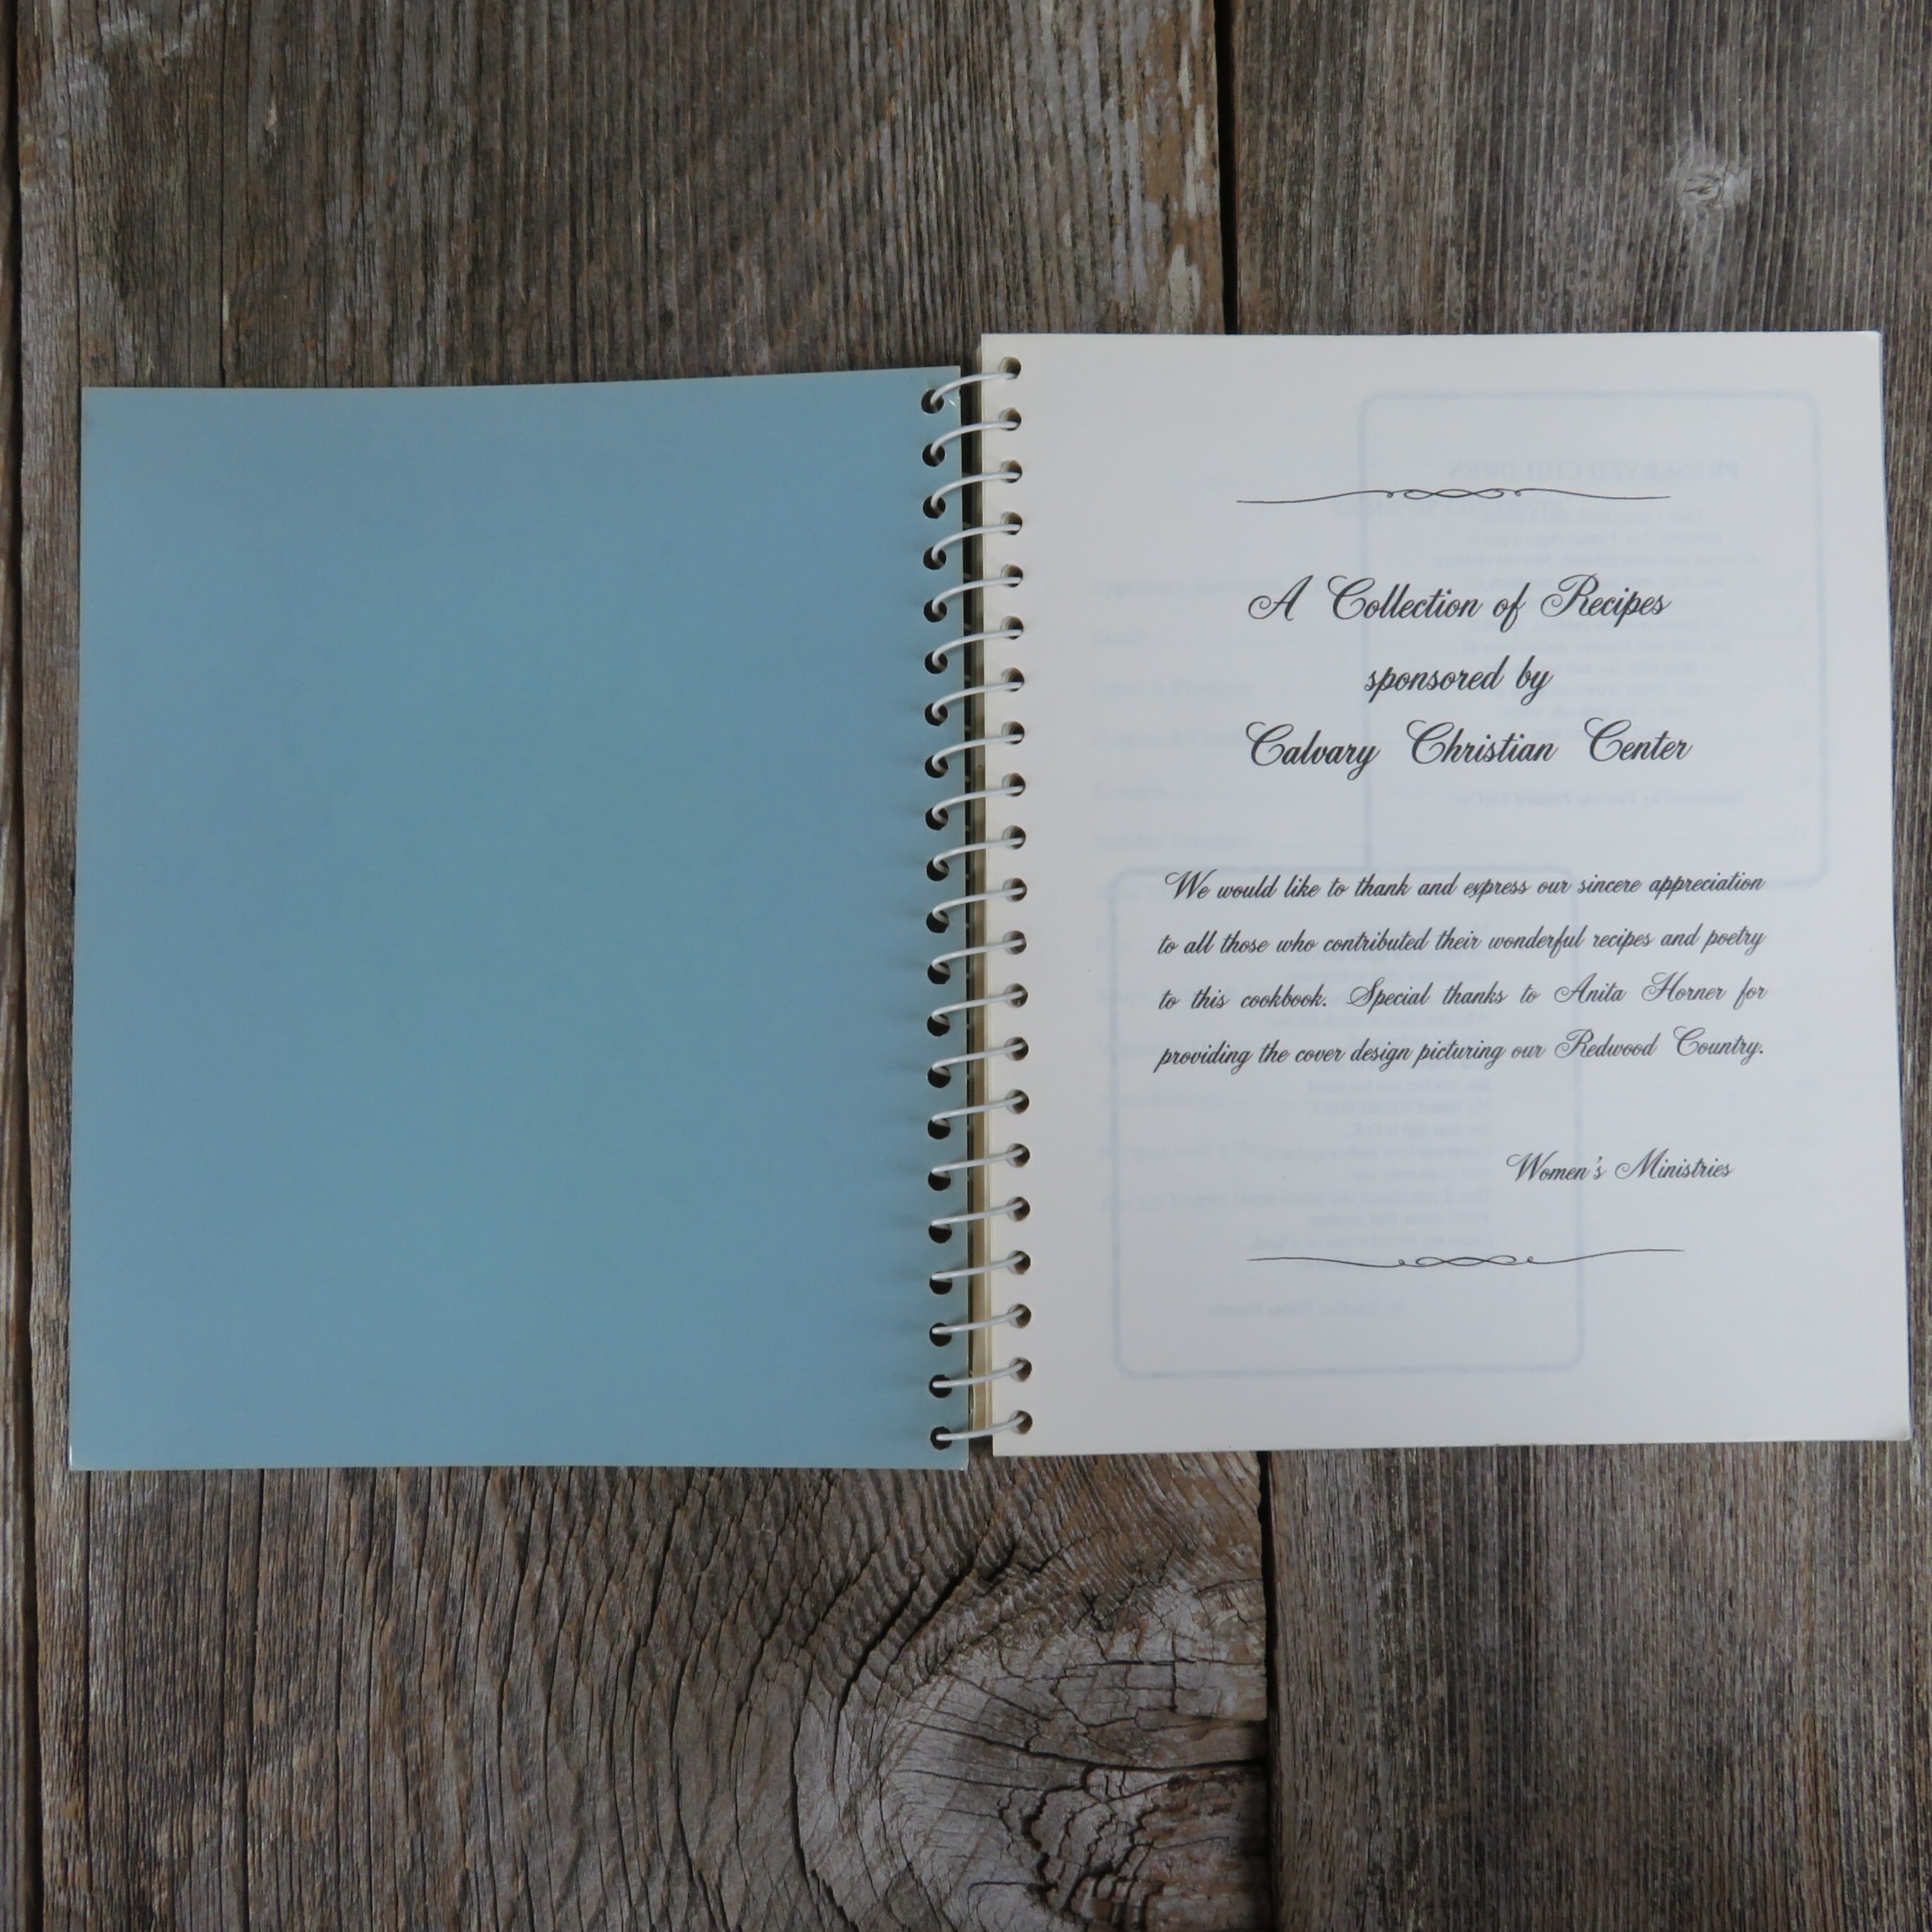 A Collection of Recipes
sponsored by
Calvary Christian Center
We would like to thank and express our sincere appreciation
to all those who contributed their wonderful recipes and poetry
to this cookbook. Special thanks to Anita Horner for
providing the cover design picturing our Redwood Country.
Women's Ministries